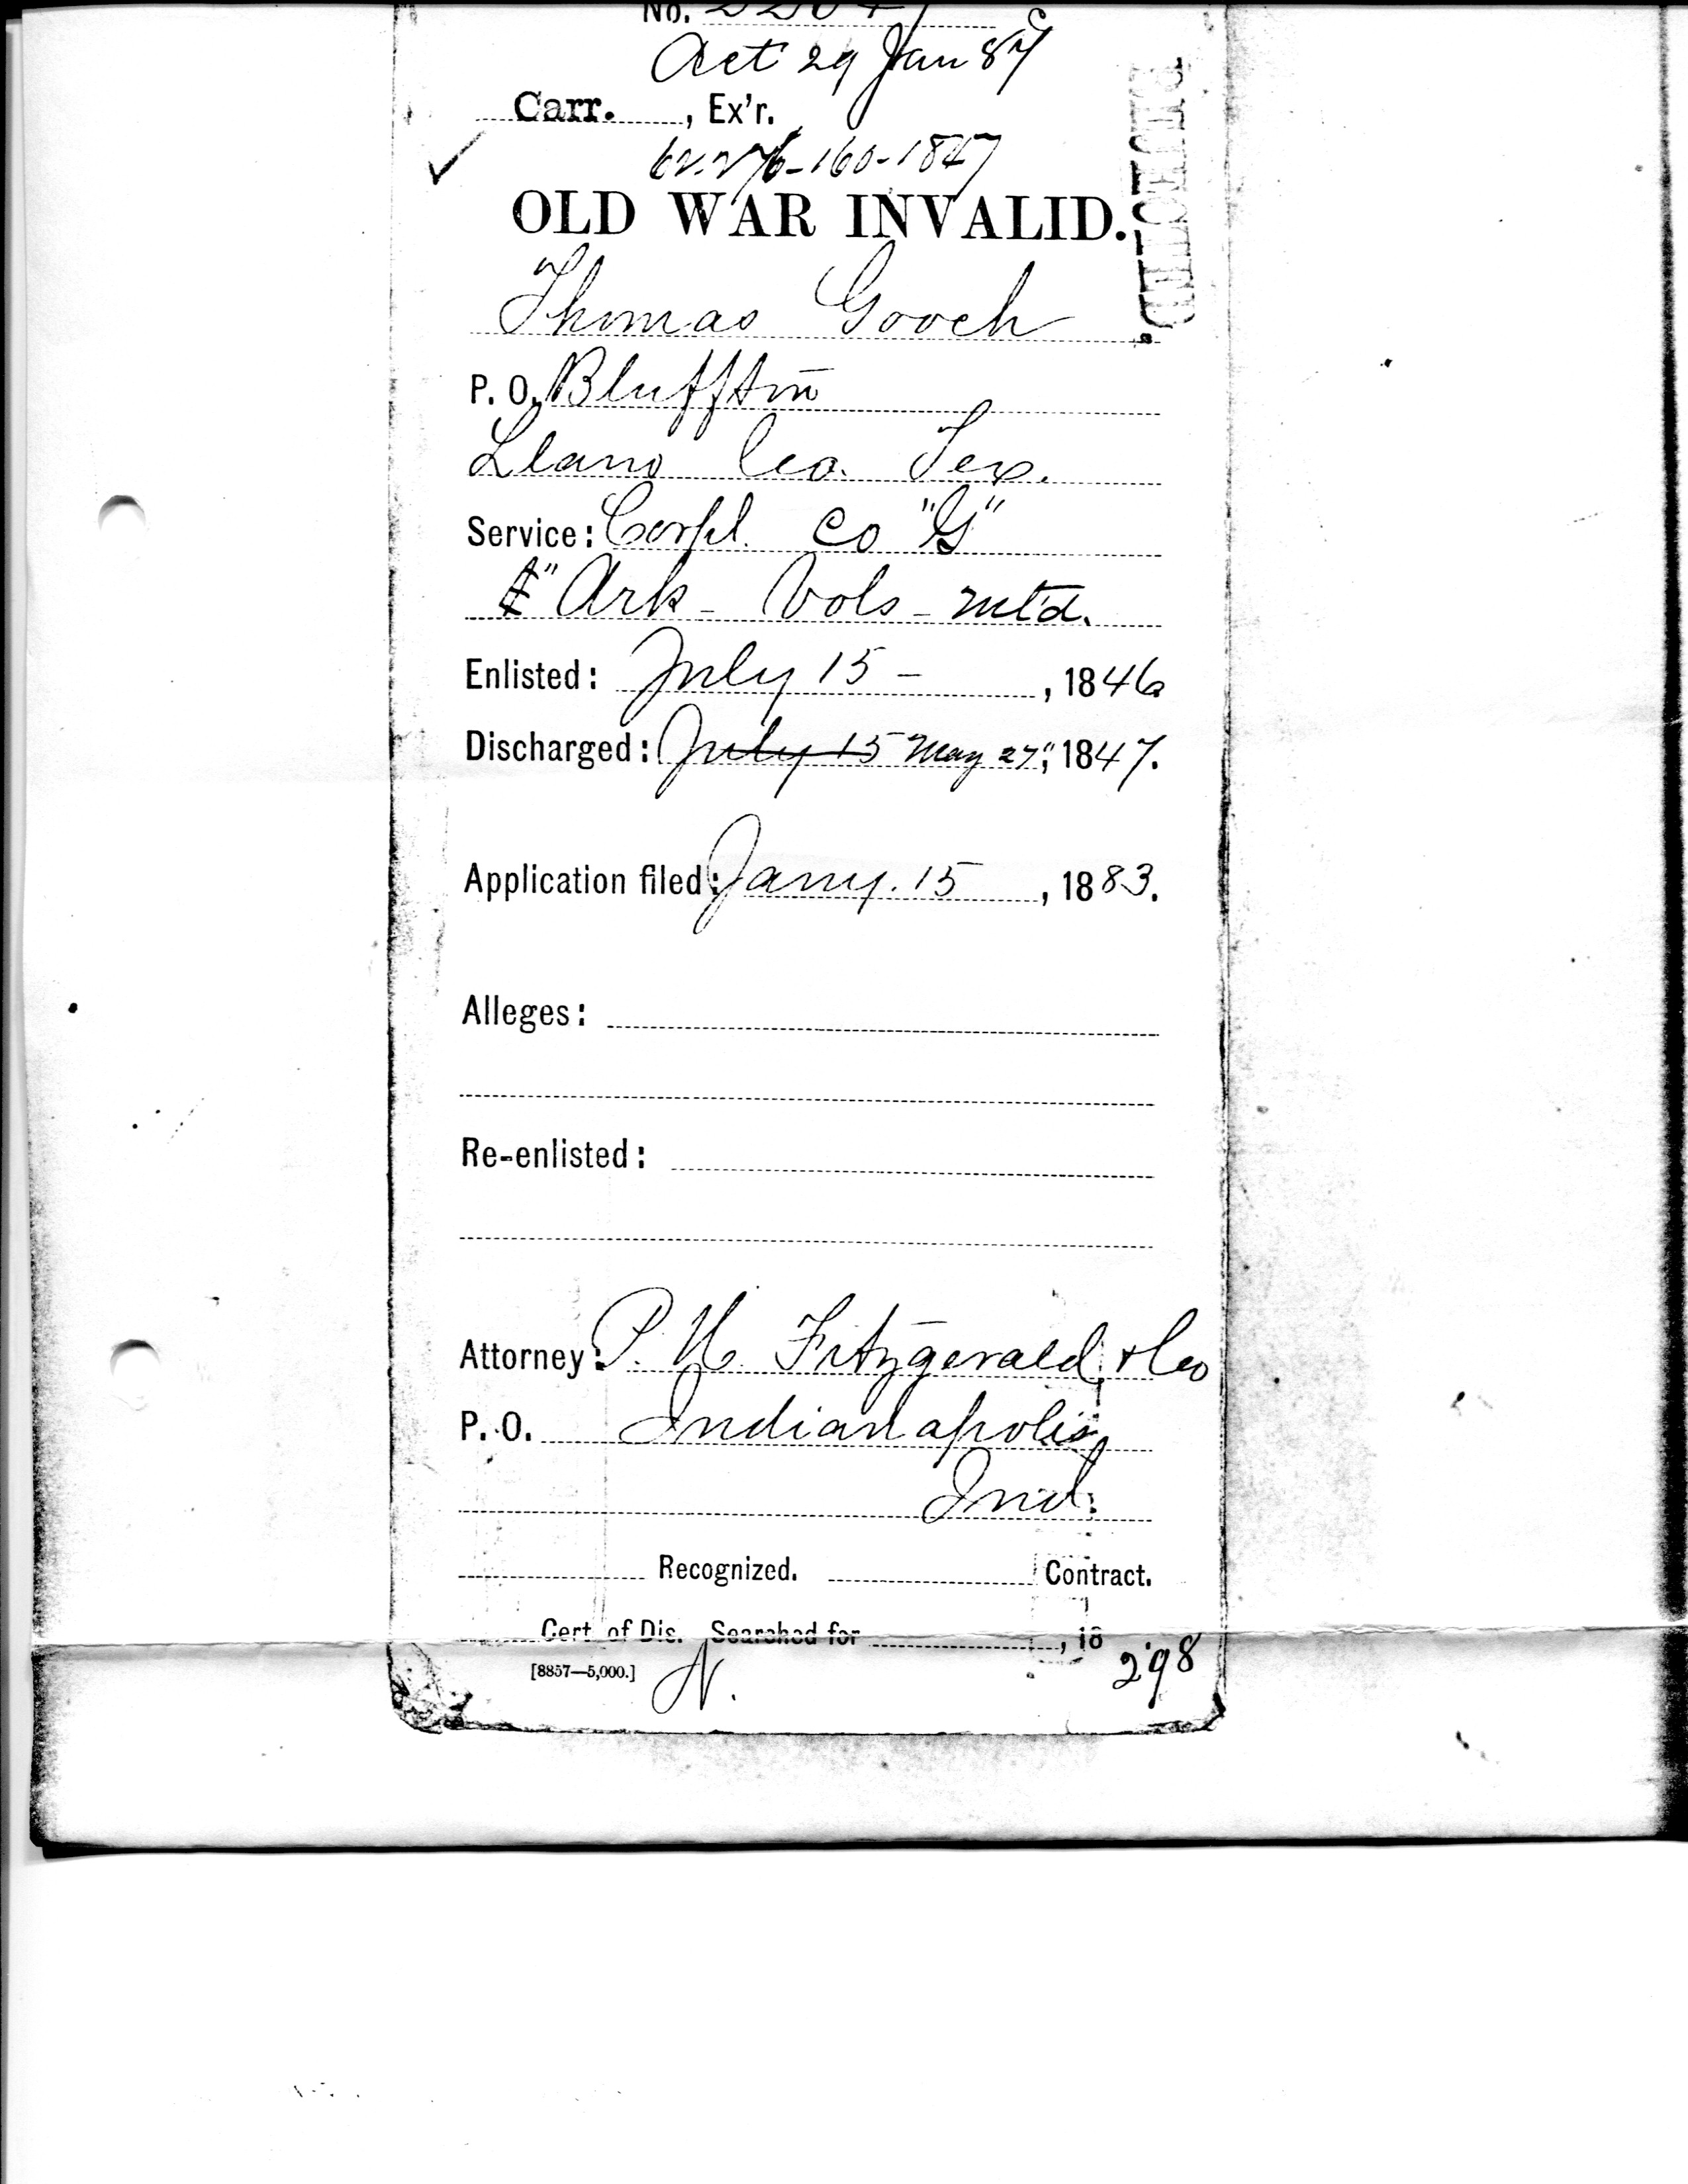 No.
Act 29 Jan 87
Carr. , Ex'r.
OLD WAR INVALID.
REJECTED.
Thomas Gooch
P. O. Bluffton
Llano Co. Tex.
Service: Corpl. Co "G"
Ark - Vols - mtd.
Enlisted: July 15 - , 1846
Discharged: July 15 May 27", 1847.
Application filed: Jany. 15 , 1883.
Alleges:
Re-enlisted:
Attorney: P. H. Fitzgerald & Co
P. O. Indianapolis
Ind.
Recognized. Contract.
Cert. of Dis. Searched for , 18
[8857—5,000.] N. 298